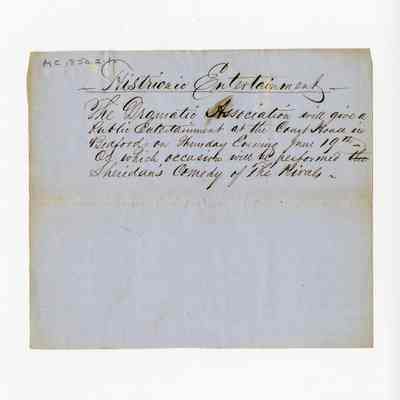 MC 1850.2
Histrionic Entertainment
The Dramatic Association will give a
Public Entertainment at the Court House in
Bedford on Thursday Evening June 19th
On which occasion will be performed the
Sheridans Comedy of The Rivals.